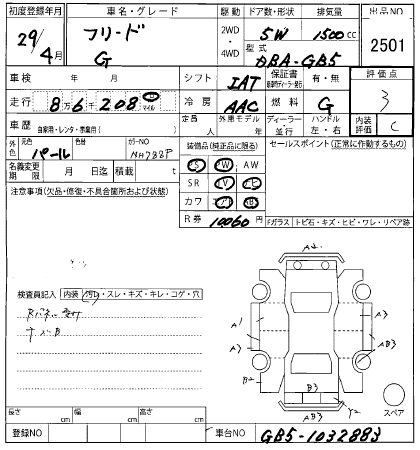 初度登録年月 車名・グレード 駆動 ドア数・形状 排気量 出品NO
29年 4月 フリード G 2WD・4WD 5W 1500cc 2501
型式 DBA-GB5
車検 年 月 シフト IAT 保証書 有・無 評価点 3
走行 8万6千208 km マイル 冷房 AAC 燃料 G
車歴 自家用・レンタ・事業用( ) 定員 人 外車モデル 年 ディーラー・並行 ハンドル 左・右 内装評価 C
外色 元色 パール 色替 カラーNO NH788P
装備品(純正品に限る) セールスポイント(正常に作動するもの)
PS PW AW
名義変更期限 月 日迄 積載 t SR TV ナビ
注意事項(欠品・修復・不具合箇所および状態) カワ エアB AB
R券 10060円
Fガラス トビ石・キズ・ヒビ・ワレ・リペア跡
検査員記入 内装 汚レ・スレ・キズ・キレ・コゲ・穴
A2
A1
A3
A3
AB3
B2
B3
Y2
AB3
スペア
長さ cm 幅 cm 高さ cm
登録NO 車台NO GB5-1032883